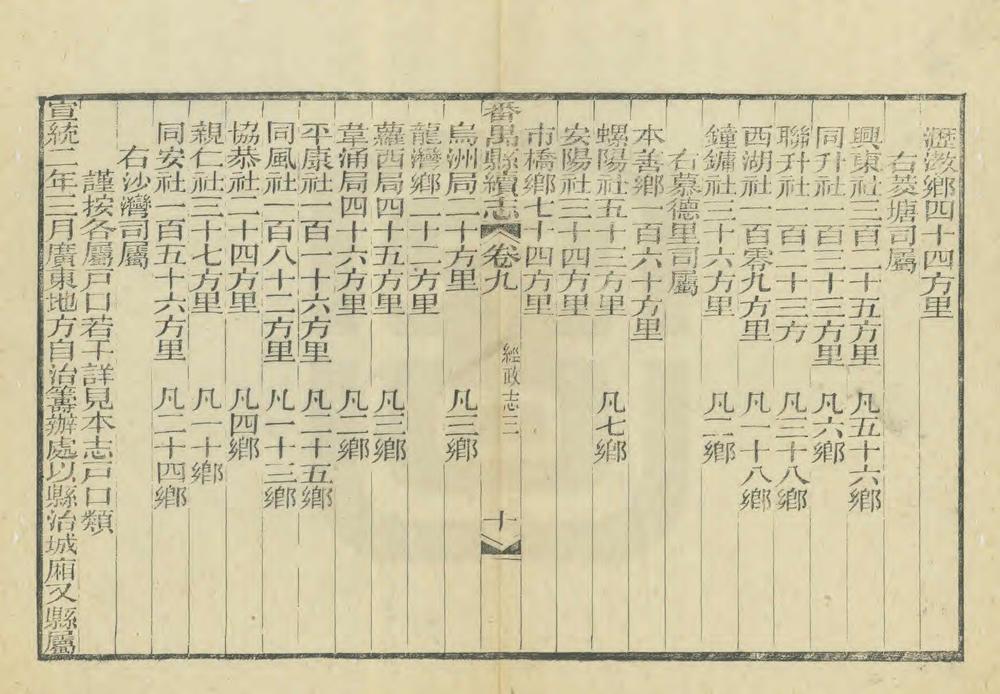 瀝滘鄉四十四方里
右茭塘司屬
興東社三百一十五方里　凡五十六鄉
同升社一百二十三方里　凡六鄉
聯升社一百二十三方　凡三十八鄉
西湖社一百零九方里　凡一十八鄉
鐘鏞社三十六方里　凡二鄉
右慕德里司屬
本善鄉一百六十方里
螺陽社五十三方里　凡七鄉
安陽社三十四方里
市橋鄉七十四方里
番禺縣續志　卷九　經政志三　十
烏洲局二十方里　凡三鄉
龍灣鄉二十二方里
蘿西局四十五方里　凡三鄉
韋涌局四十六方里　凡二鄉
平康社一百一十六方里　凡二十五鄉
同風社一百八十二方里　凡一十三鄉
協恭社二十四方里　凡四鄉
親仁社三十七方里　凡一十鄉
同安社一百五十六方里　凡二十四鄉
右沙灣司屬
謹按各屬戸口若干詳見本志戸口類
宣統二年三月廣東地方自治籌辦處以縣治城廂又縣屬